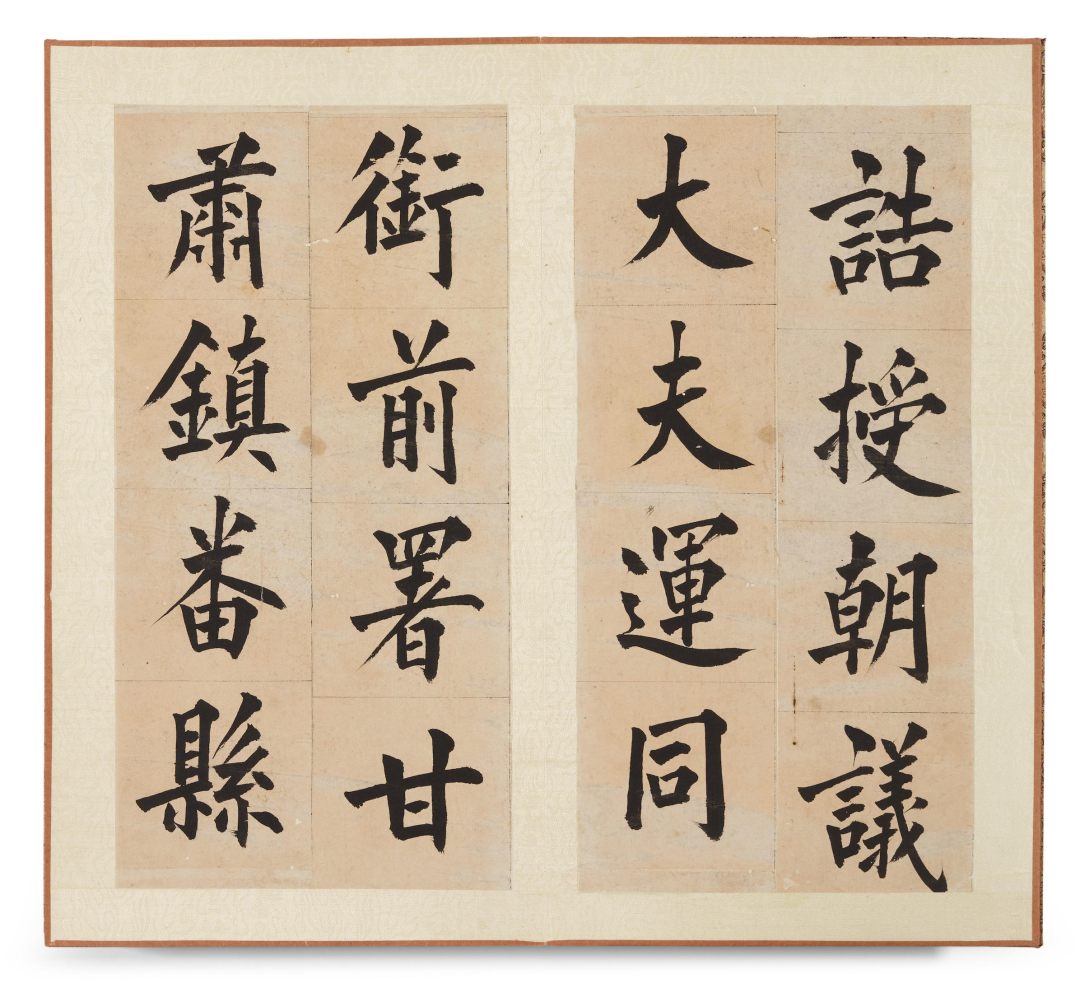 誥授朝議
大夫運同
銜前署甘
肅鎮番縣